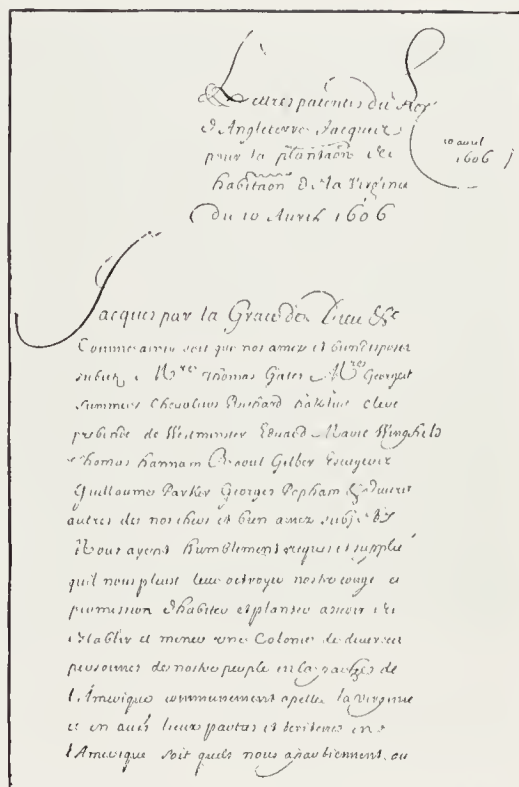 Lettres patentes du Roy
d'Angleterre Jacques
pour la plantaon et
habitaon de la Virginie
du 10 Avril 1606
10 avril
1606
Jacques par la Grace de Dieu &c
Comme ainsi soit que nos amez et bien disposez
subietz Mres Thomas Gates Mres Georges
Summers Chevaliers Richard hakluit clerc
prebende de Westminster Edouard Marie Wingfield
Thomas hannam Raoul Gilber Escuyers
Guillaume Parker Georges Popham & divers
autres de nos chers et bien amez subjets
Nous ayent humblement requis et supplié
quil nous pleust leur octroyer nostre congé et
permission d'habiter et planter
establir et mener une Colonie de diverses
personnes de nostre peuple en la partye de
l'Amerique communement apellee la virginie
et en autres lieux parties et territoires en
l'Amerique soit quels nous apartiennent, ou